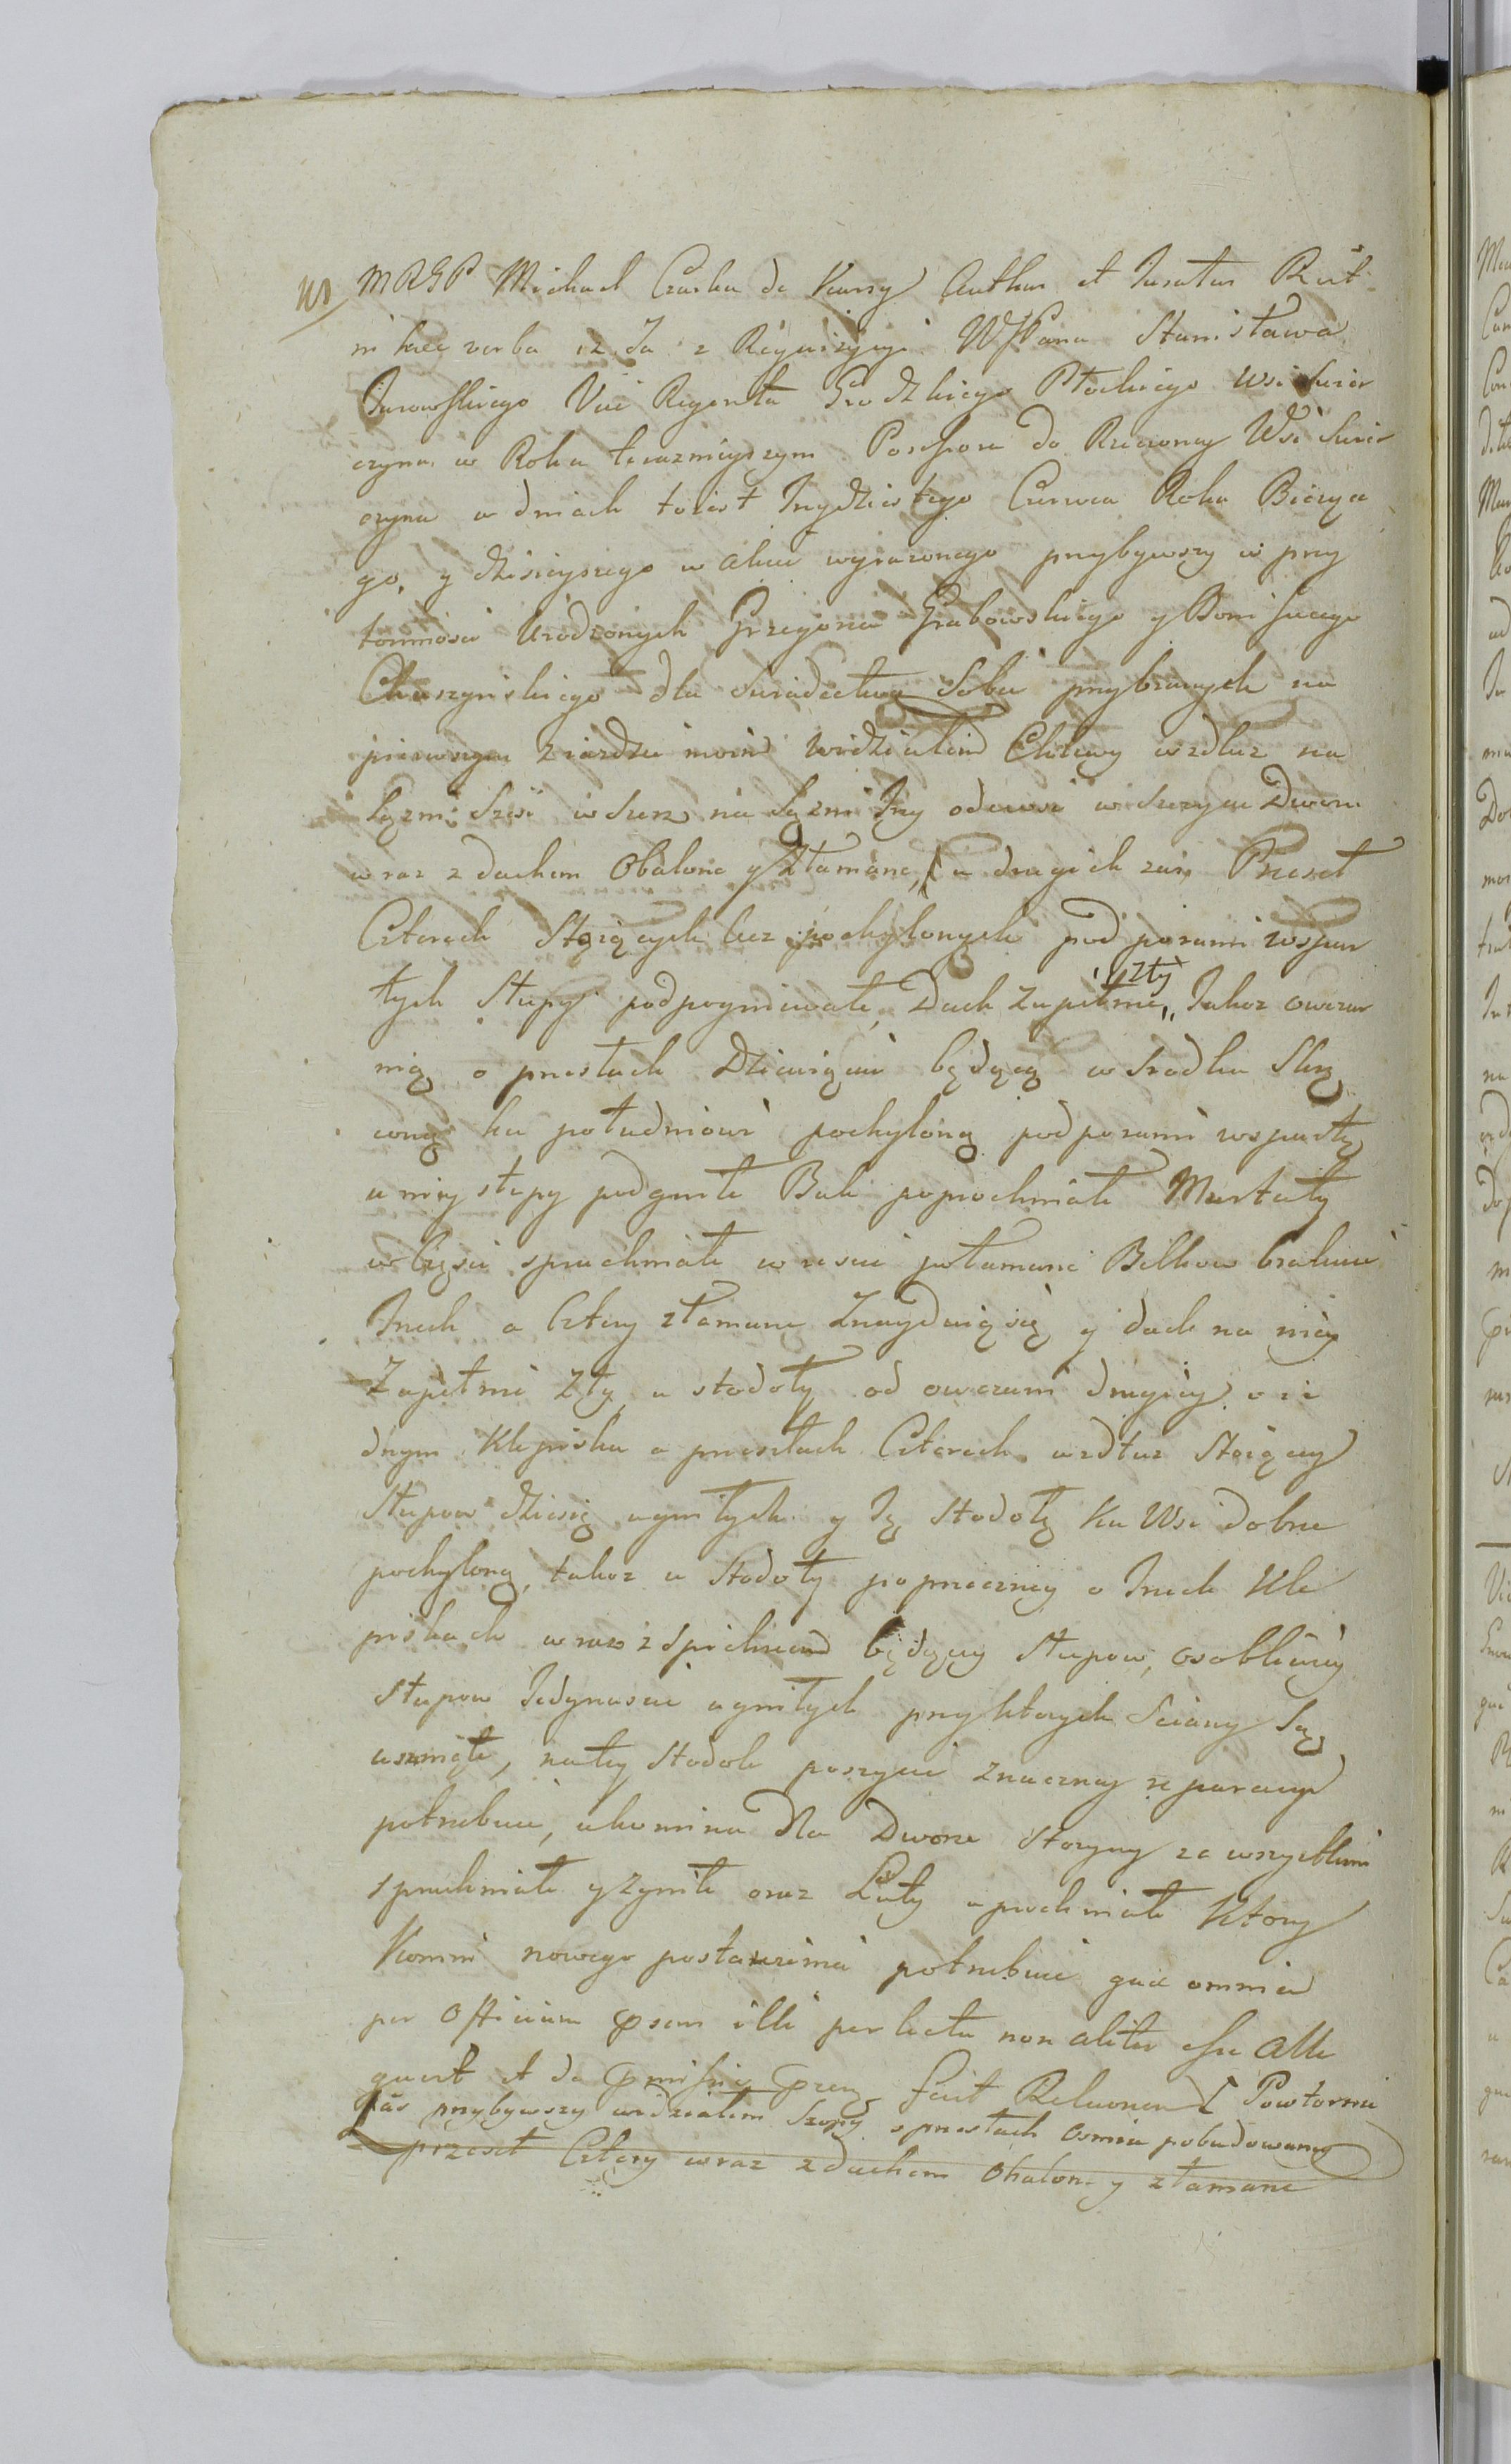 MRGP Michael Czarka de Kursy Author et Juratus Rlit
in haec verba iz Ja z Rekwizycyi WJPana Stanisława
Jurowskiego Vice Regenta Grodzkiego Płockiego Wsi Swier
czyna w Roku terazniejszym Possessora do Rzeczoney Wsi Swier
czyna w dniach toiest Trzydziestego Czerwca Roku Bieżące
go, y dzisieyszego w akcie wyrażonego przybywszy w przy
tomności Urodzonych Grzegorza Grabowskiego y Bonifacego
Chaszynskiego dla Swiadectwa Sobie przybranych na
pierwszym ziezdzie moim widziałem Chlewy wzdłuz na
Sązni Szesć wszerz na Sązni Trzy od wsi w Szczycie Dworu
wraz z dachem Obalone y Złamane, u drugich zaś Przeseł
Czterech Stoiących lecz pochylonych podporami wspar
tych Słupy podpogniwałe, Dach Zupełnie zły, Jakoz owczar
nią o przesłach Dziewiąciu będącą w Srodku Skrzy
wioną ku południowi pochyloną podporami wspartą
u niey słupy podgniłe Bale poprochniałe Murłaty
w Części spruchniałe w reście połamane Belkow brakuie
Trzech a Cztery złamane Znayduią się y dach na niey
Zupełnie Zły, u stodoły od owczarni drugiey o ie
dnym Klepisku o przesłach Czterech wzdłuz Stoiącey
Słupow dziesięć ugniłych y Tę Stodołę ku Wsi dobrze
pochyloną, takoz u Stodoły poprzeczney o Trzech Kle
piskach wraz z Spichrzem będącey Słupow, osobliwiey
Słupow Jedynascie ugniłych przy których Sciany Są
, na tey Stodole poszycie znaczney reparacyi
potrzebuie, u komina dla Dworu Storcy ze wszystkim
spruchniałe y Zgniłe oraz Łaty uprochniałe Ktory
Komin nowego postawienia potrzebuie quae omnia
per Officium ipsum illi perlecta non aliter esse Alle
gavit et de pmissis prem. fecit Relaonem [ Powtornie
zaś przybywszy widziałem Szopy o przesłach Osmiu pobudowaney
przeseł Cztery wraz z dachem Obalone y złamane